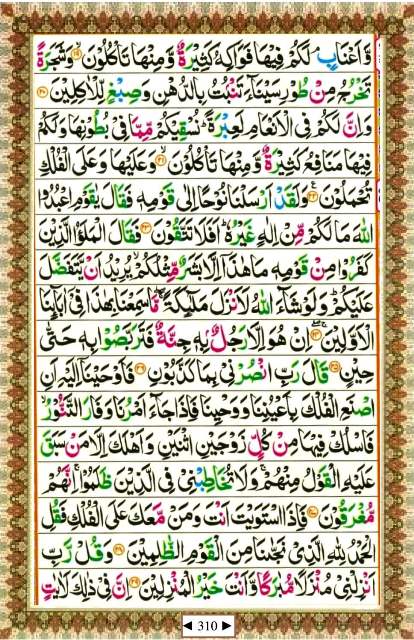 وَّ اَعْنَابٍ ۘ لَكُمْ فِیْهَا فَوَاكِهُ كَثِیْرَةٌ وَّ مِنْهَا تَاْكُلُوْنَ ۙ۝۱۹ وَ شَجَرَةً
تَخْرُجُ مِنْ طُوْرِ سَیْنَآءَ تَنْۢبُتُ بِالدُّهْنِ وَ صِبْغٍ لِّلْاٰكِلِیْنَ ۝۲۰
وَ اِنَّ لَكُمْ فِی الْاَنْعَامِ لَعِبْرَةً ؕ نُسْقِیْكُمْ مِّمَّا فِیْ بُطُوْنِهَا وَ لَكُمْ
فِیْهَا مَنَافِعُ كَثِیْرَةٌ وَّ مِنْهَا تَاْكُلُوْنَ ۙ۝۲۱ وَ عَلَیْهَا وَ عَلَی الْفُلْكِ
تُحْمَلُوْنَ ۠۝۲۲ وَ لَقَدْ اَرْسَلْنَا نُوْحًا اِلٰی قَوْمِهٖ فَقَالَ یٰقَوْمِ اعْبُدُوا
اللّٰهَ مَا لَكُمْ مِّنْ اِلٰهٍ غَیْرُهٗ ؕ اَفَلَا تَتَّقُوْنَ ۝۲۳ فَقَالَ الْمَلَؤُا الَّذِیْنَ
كَفَرُوْا مِنْ قَوْمِهٖ مَا هٰذَاۤ اِلَّا بَشَرٌ مِّثْلُكُمْ ۙ یُرِیْدُ اَنْ یَّتَفَضَّلَ
عَلَیْكُمْ ؕ وَ لَوْ شَآءَ اللّٰهُ لَاَنْزَلَ مَلٰٓىِٕكَةً ۖۚ مَّا سَمِعْنَا بِهٰذَا فِیْۤ اٰبَآىِٕنَا
الْاَوَّلِیْنَ ۚ۝۲۴ اِنْ هُوَ اِلَّا رَجُلٌۢ بِهٖ جِنَّةٌ فَتَرَبَّصُوْا بِهٖ حَتّٰی
حِیْنٍ ۝۲۵ قَالَ رَبِّ انْصُرْنِیْ بِمَا كَذَّبُوْنِ ۝۲۶ فَاَوْحَیْنَاۤ اِلَیْهِ اَنِ
اصْنَعِ الْفُلْكَ بِاَعْیُنِنَا وَ وَحْیِنَا فَاِذَا جَآءَ اَمْرُنَا وَ فَارَ التَّنُّوْرُ ۙ
فَاسْلُكْ فِیْهَا مِنْ كُلٍّ زَوْجَیْنِ اثْنَیْنِ وَ اَهْلَكَ اِلَّا مَنْ سَبَقَ
عَلَیْهِ الْقَوْلُ مِنْهُمْ ۚ وَ لَا تُخَاطِبْنِیْ فِی الَّذِیْنَ ظَلَمُوْا ۚ اِنَّهُمْ
مُّغْرَقُوْنَ ۝۲۷ فَاِذَا اسْتَوَیْتَ اَنْتَ وَ مَنْ مَّعَكَ عَلَی الْفُلْكِ فَقُلِ
الْحَمْدُ لِلّٰهِ الَّذِیْ نَجّٰىنَا مِنَ الْقَوْمِ الظّٰلِمِیْنَ ۝۲۸ وَ قُلْ رَّبِّ
اَنْزِلْنِیْ مُنْزَلًا مُّبٰرَكًا وَّ اَنْتَ خَیْرُ الْمُنْزِلِیْنَ ۝۲۹ اِنَّ فِیْ ذٰلِكَ لَاٰیٰتٍ
◄ 310 ►